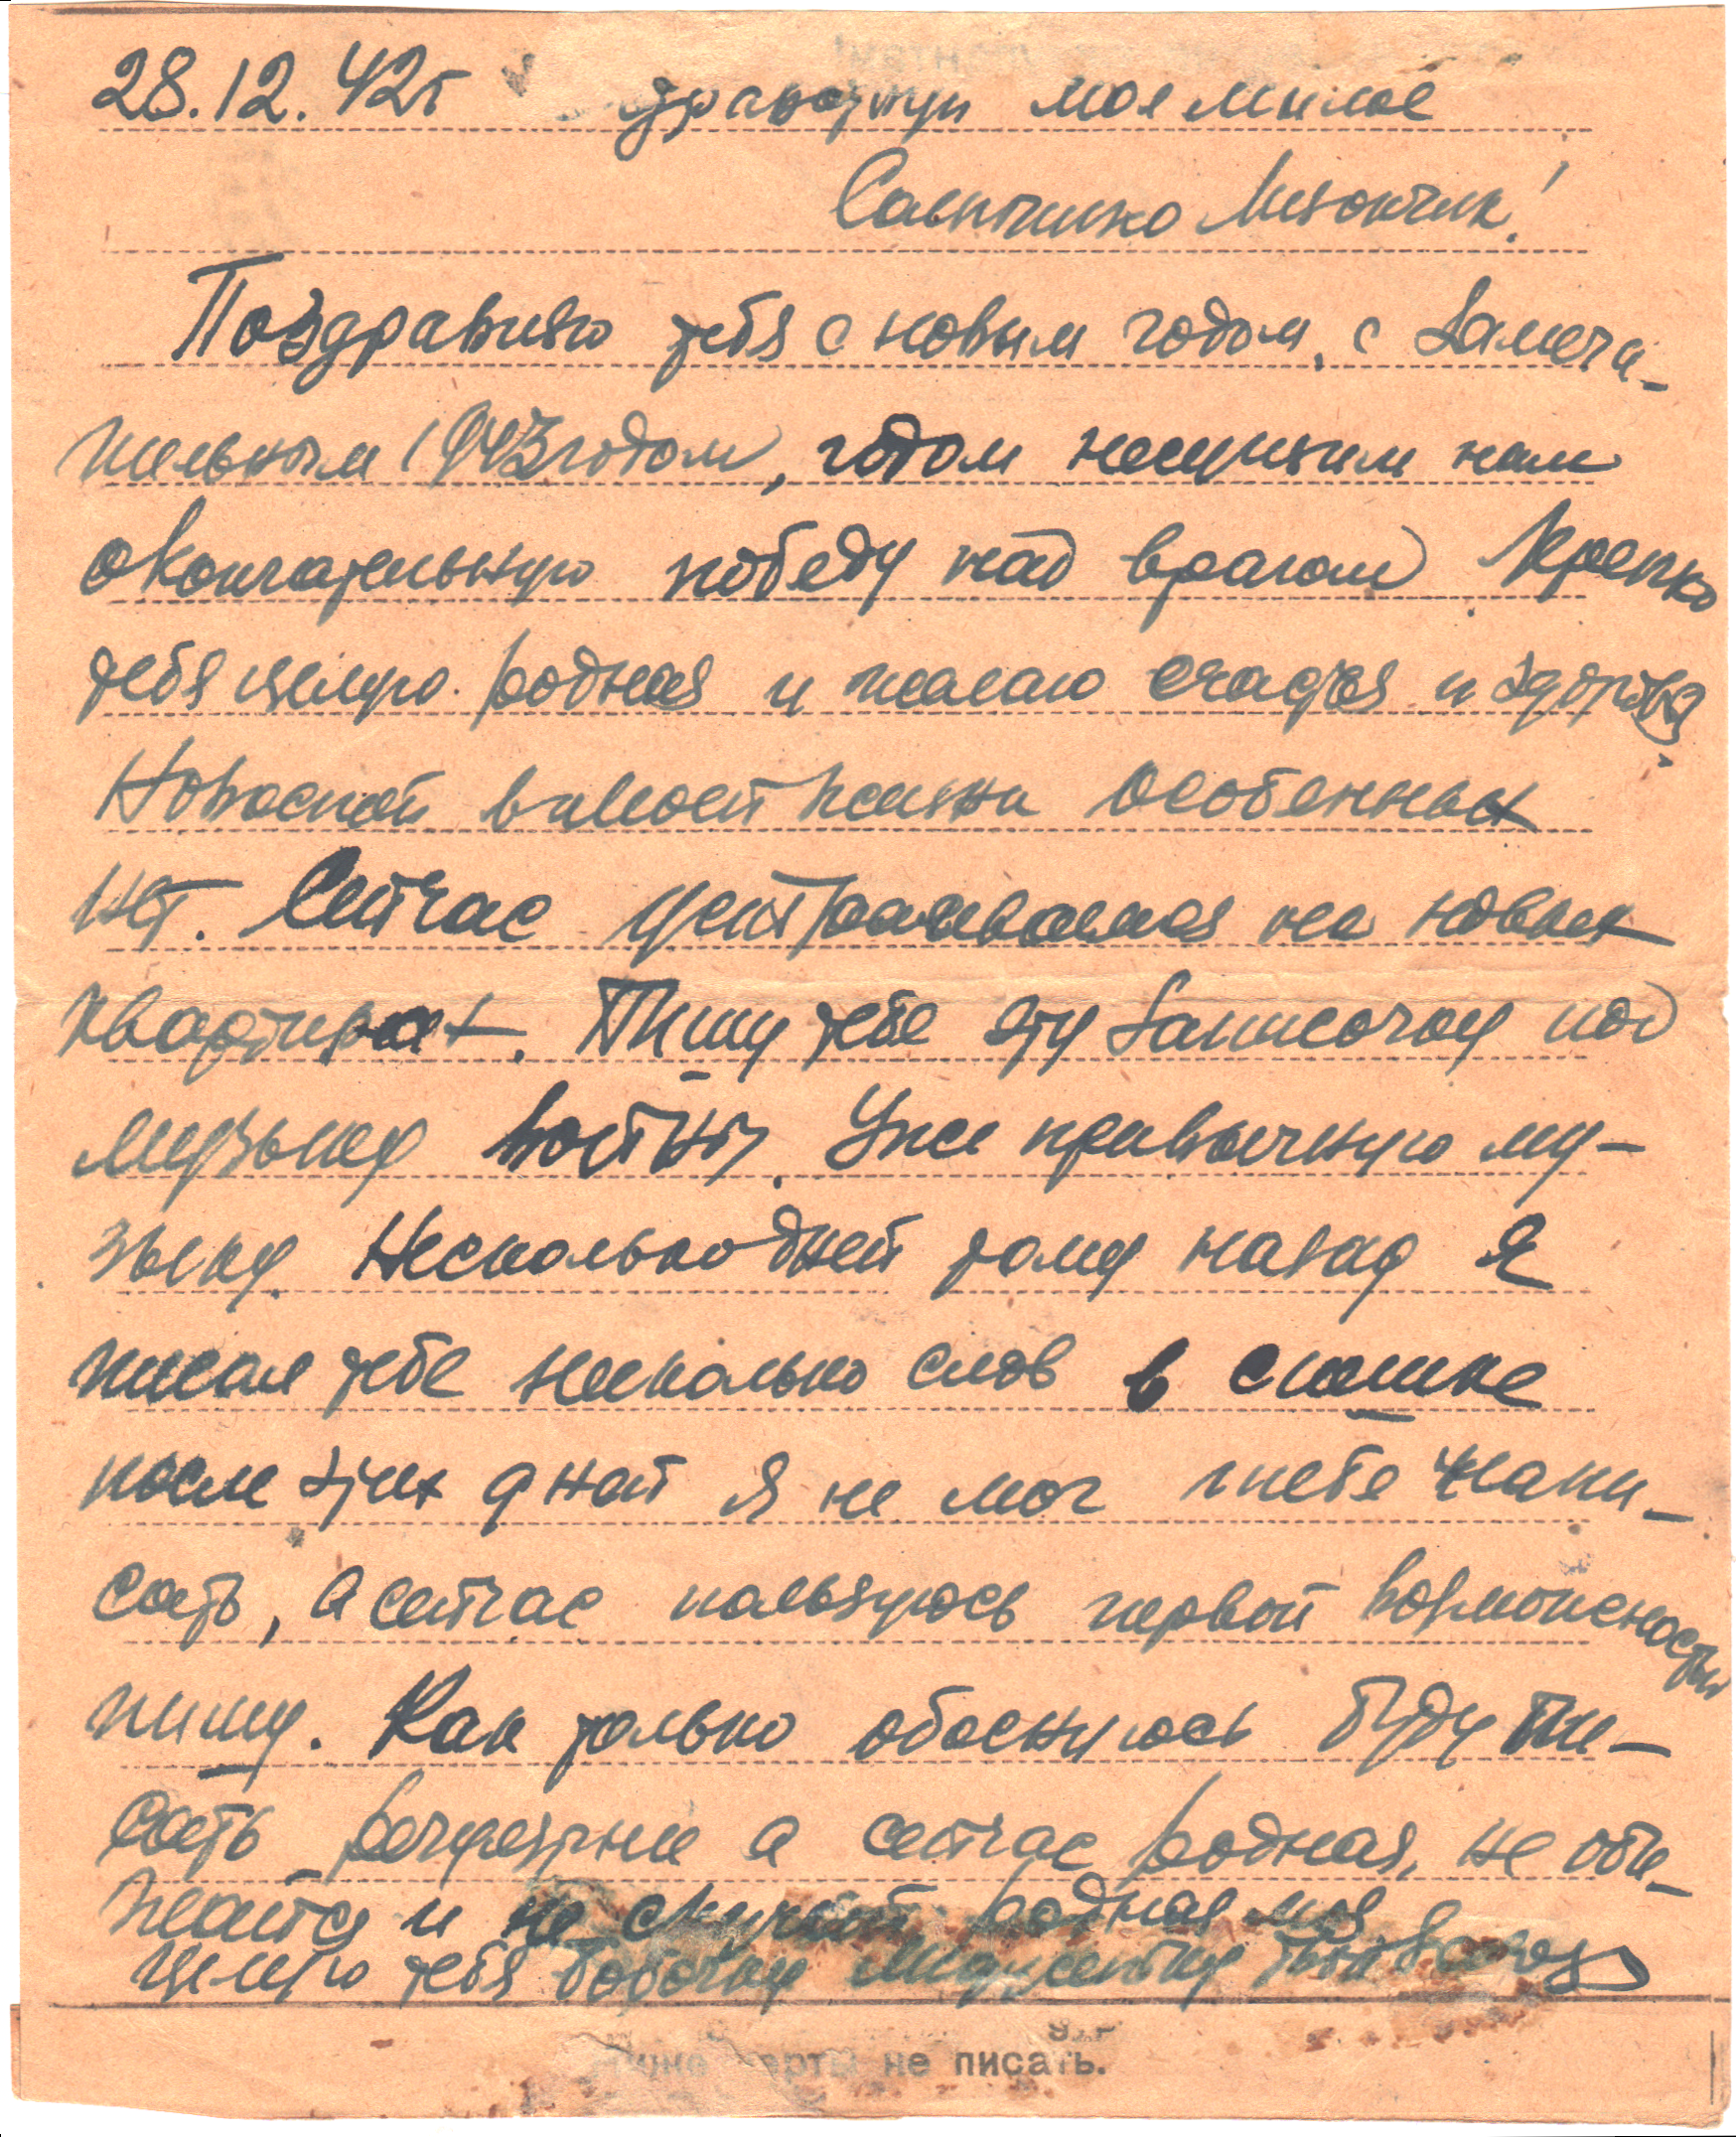 28.12.42г здравствуй моя милая
Лизончик!
Поздравляю тебя с новым годом, с замеча-
тельным 1943 годом, годом несущим нам
окончательную победу над врагом Крепко
тебя целую родная и желаю счастья и здоровья
Новостей в моей жизни особенных
нет. Сейчас устраиваемся на новых
квартирах. Пишу тебе эту записочку под
музыку войны. Уже привычную му-
зыку. Несколько дней тому назад я
писал тебе несколько слов в спешке
после этих дней я не мог тебе напи-
сать, а сейчас пользуюсь первой возможностью
пишу. Как только обоснуюсь буду пи-
сать а сейчас родная, не оби-
жайся и не скучай родная моя
целую тебя
не писать.